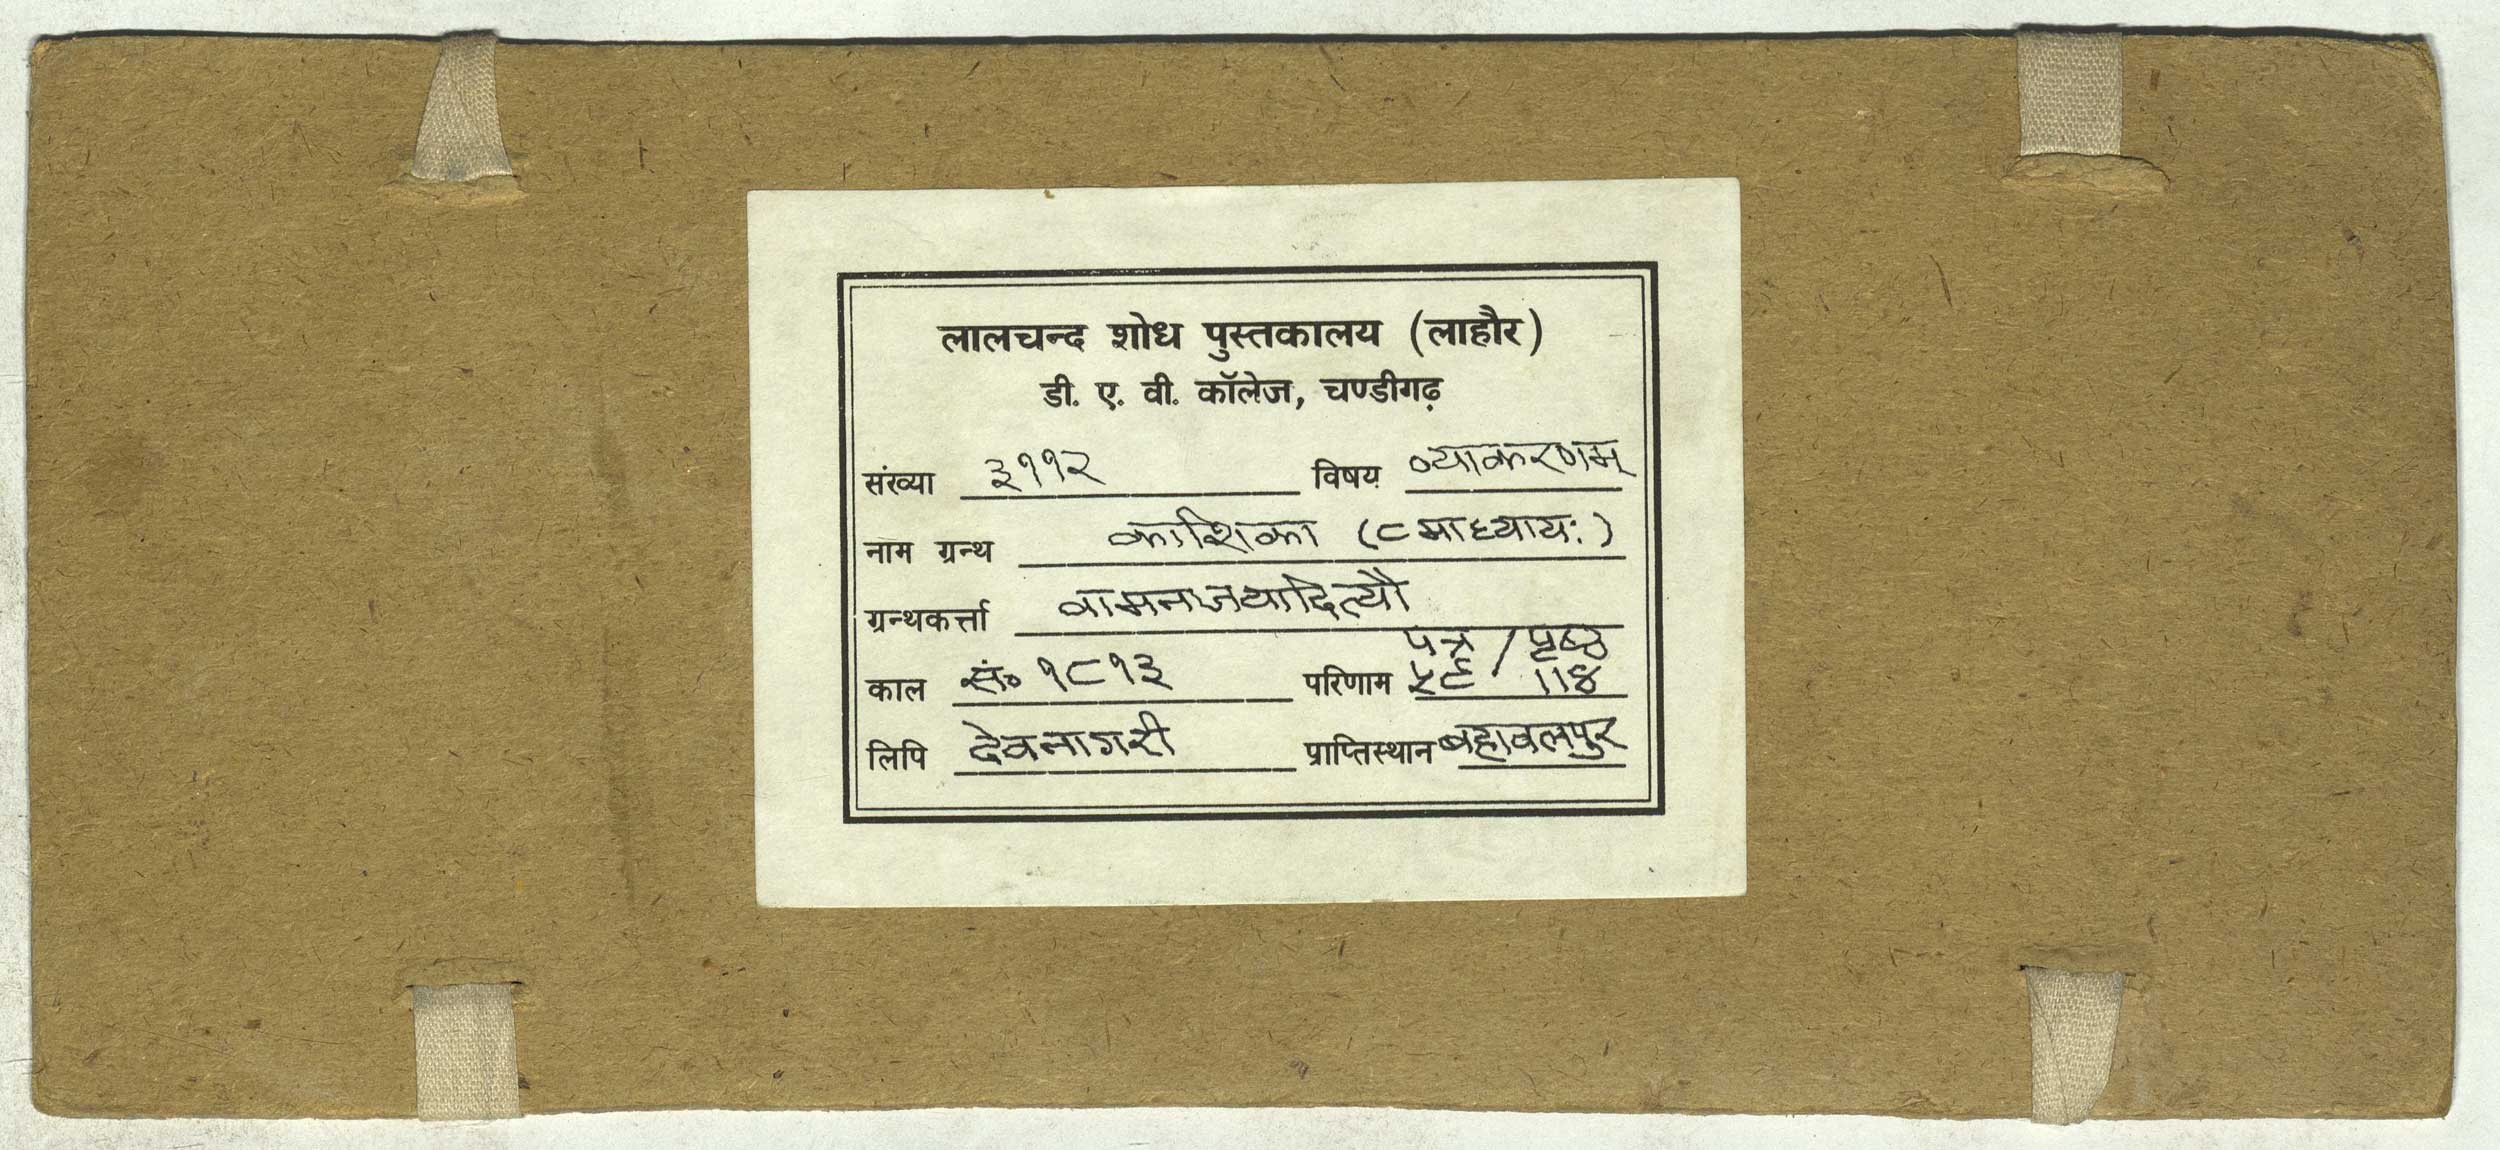 लालचन्द शोध पुस्तकालय (लाहौर)
डी. ए. वी. कॉलेज, चण्डीगढ़
संख्या ३११२ विषय व्याकरणम्
नाम ग्रन्थ काशिका (८माध्यायः)
ग्रन्थकर्त्ता वामनजयादित्यौ
पत्र / पृष्ठ
काल सं० १८१३ परिणाम ५९ / ११४
लिपि देवनागरी प्राप्तिस्थान बहावलपुर